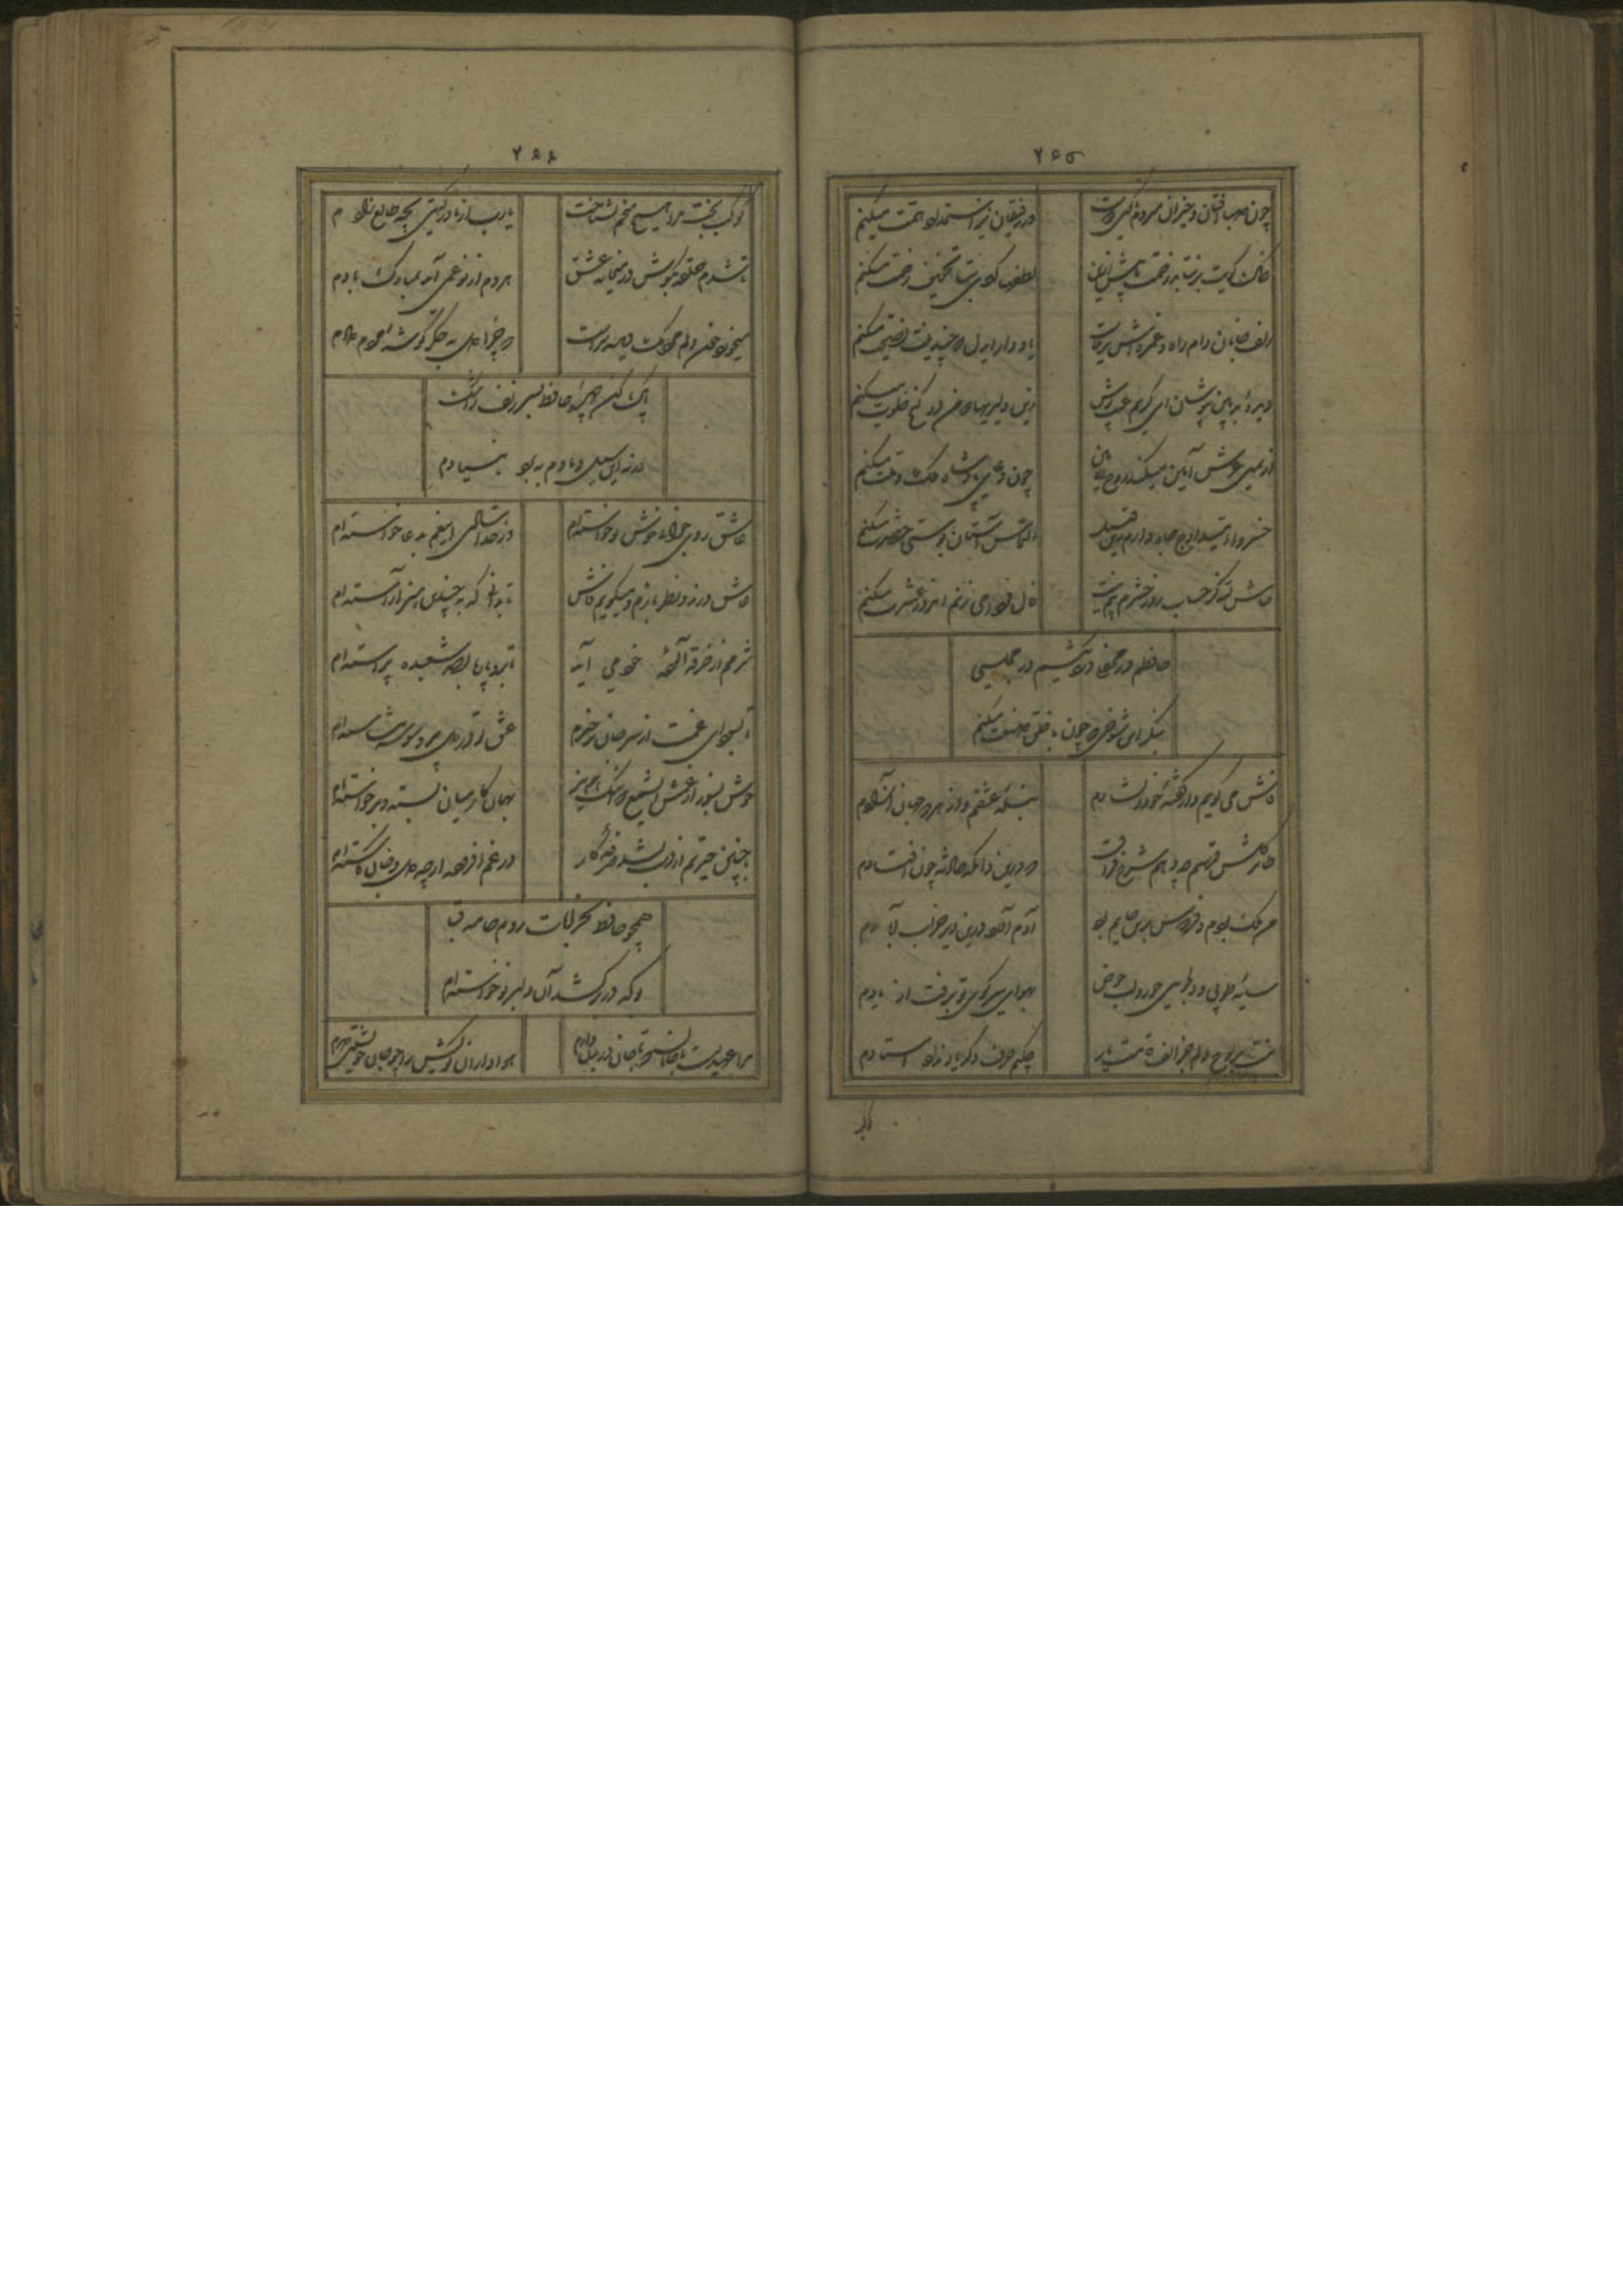 ۲۶۵
چون صبا افتان و خیزان میروم تا کوی دوست
در رفیقان نیز استمداد همت میکنم
خاک کویت بر نتابد زحمت ما بیش ازین
لطفها کردی بتا تخفیف زحمت میکنم
زلف خوبان دام راه و غمزه اش تیر بلاست
یاد دار ای دل که چندینت نصیحت میکنم
دیده بد بین بپوشان ای کریم عیب پوش
زین دلیریها که من در کنج خلوت میکنم
از یمین عرش آمین میکند روح الامین
چون دعای پادشاه ملک و ملت میکنم
خسروا امید اوج جاه دارم زین قبل
التماس آستان بوسی حضرت میکنم
حاش لله کز حساب روز حشرم بیم نیست
فال فردا می زنم امروز عشرت میکنم
حافظم در محفلی دردی کشم در مجلسی
بنگر این شوخی که چون با خلق صنعت میکنم
فاش می گویم و از گفته خود دلشادم
بنده عشقم و از هر دو جهان آزادم
طایر گلشن قدسم چه دهم شرح فراق
که درین دامگه حادثه چون افتادم
من ملک بودم و فردوس برین جایم بود
آدم آورد درین دیر خراب آبادم
سایه طوبی و دلجویی حور و لب حوض
بهوای سر کوی تو برفت از یادم
نیست بر لوح دلم جز الف قامت یار
چکنم حرف دگر یاد نداد استادم
۲۶۶
کوکب بخت مرا هیچ منجم نشناخت
یارب از مادر گیتی بچه طالع زادم
تا شدم حلقه بگوش در میخانه عشق
هر دم از نو غمی آید بمبارک بادم
میخورد خون دلم مردمک دیده سزاست
که چرا دل به جگر گوشه مردم دادم
پاک کن چهره حافظ بسر زلف ز اشک
ورنه این سیل دمادم ببرد بنیادم
عاشق روی جوانی خوش نوخاسته ام
وز خدا شادی این غم بدعا خواسته ام
عاشق و رند و نظر بازم و میگویم فاش
تا بدانی که به چندین هنر آراسته ام
شرمم از خرقه آلوده خود می آید
که برو پاره بصد شعبده پیراسته ام
خوش بسوز از غمش ای شمع که اینک من نیز
بهمان کار میان بسته و برخاسته ام
با چنین حیرتم از دست بشد صرفه کار
در غم افزوده ام آنچه از دل و جان کاسته ام
همچو حافظ بخرابات روم جامه قبا
بو که در بر کشد آن دلبر نوخاسته ام
مرا عهدیست با جانان که تا جان در بدن دارم
هواداران کویش را چو جان خویشتن دارم